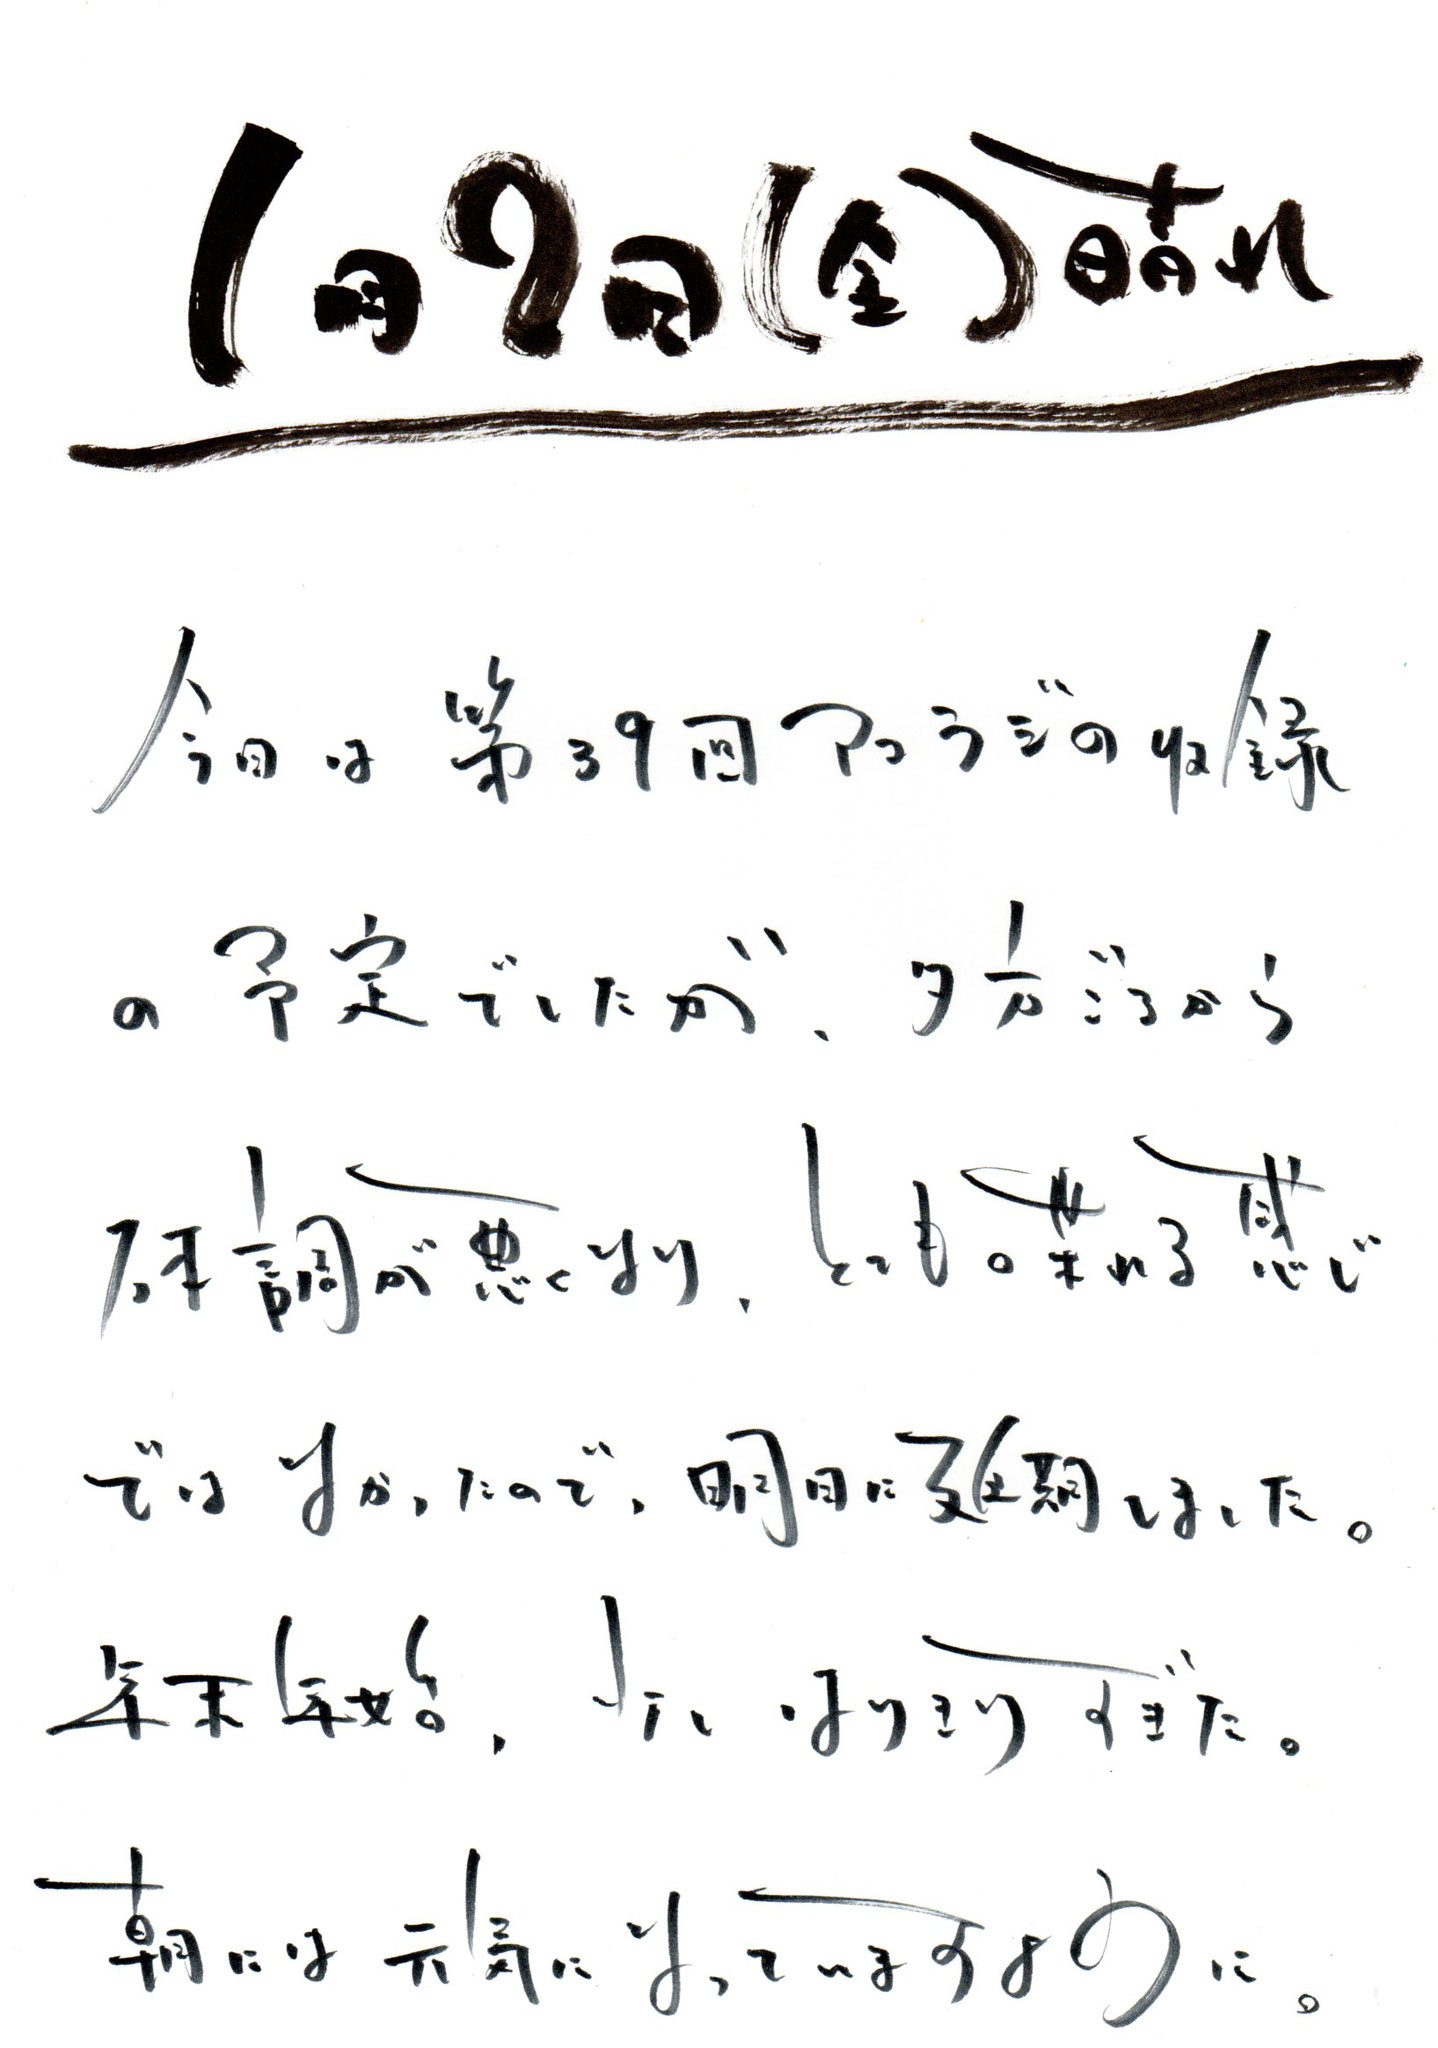 1月7日(金)晴れ
今日は第39回アコラジの収録
の予定でしたが、夕方ごろから
体調が悪くなり、とても喋れる感じ
ではなかったので、明日に延期しました。
年末年始、少しはりきりすぎた。
朝には元気になっていますように。